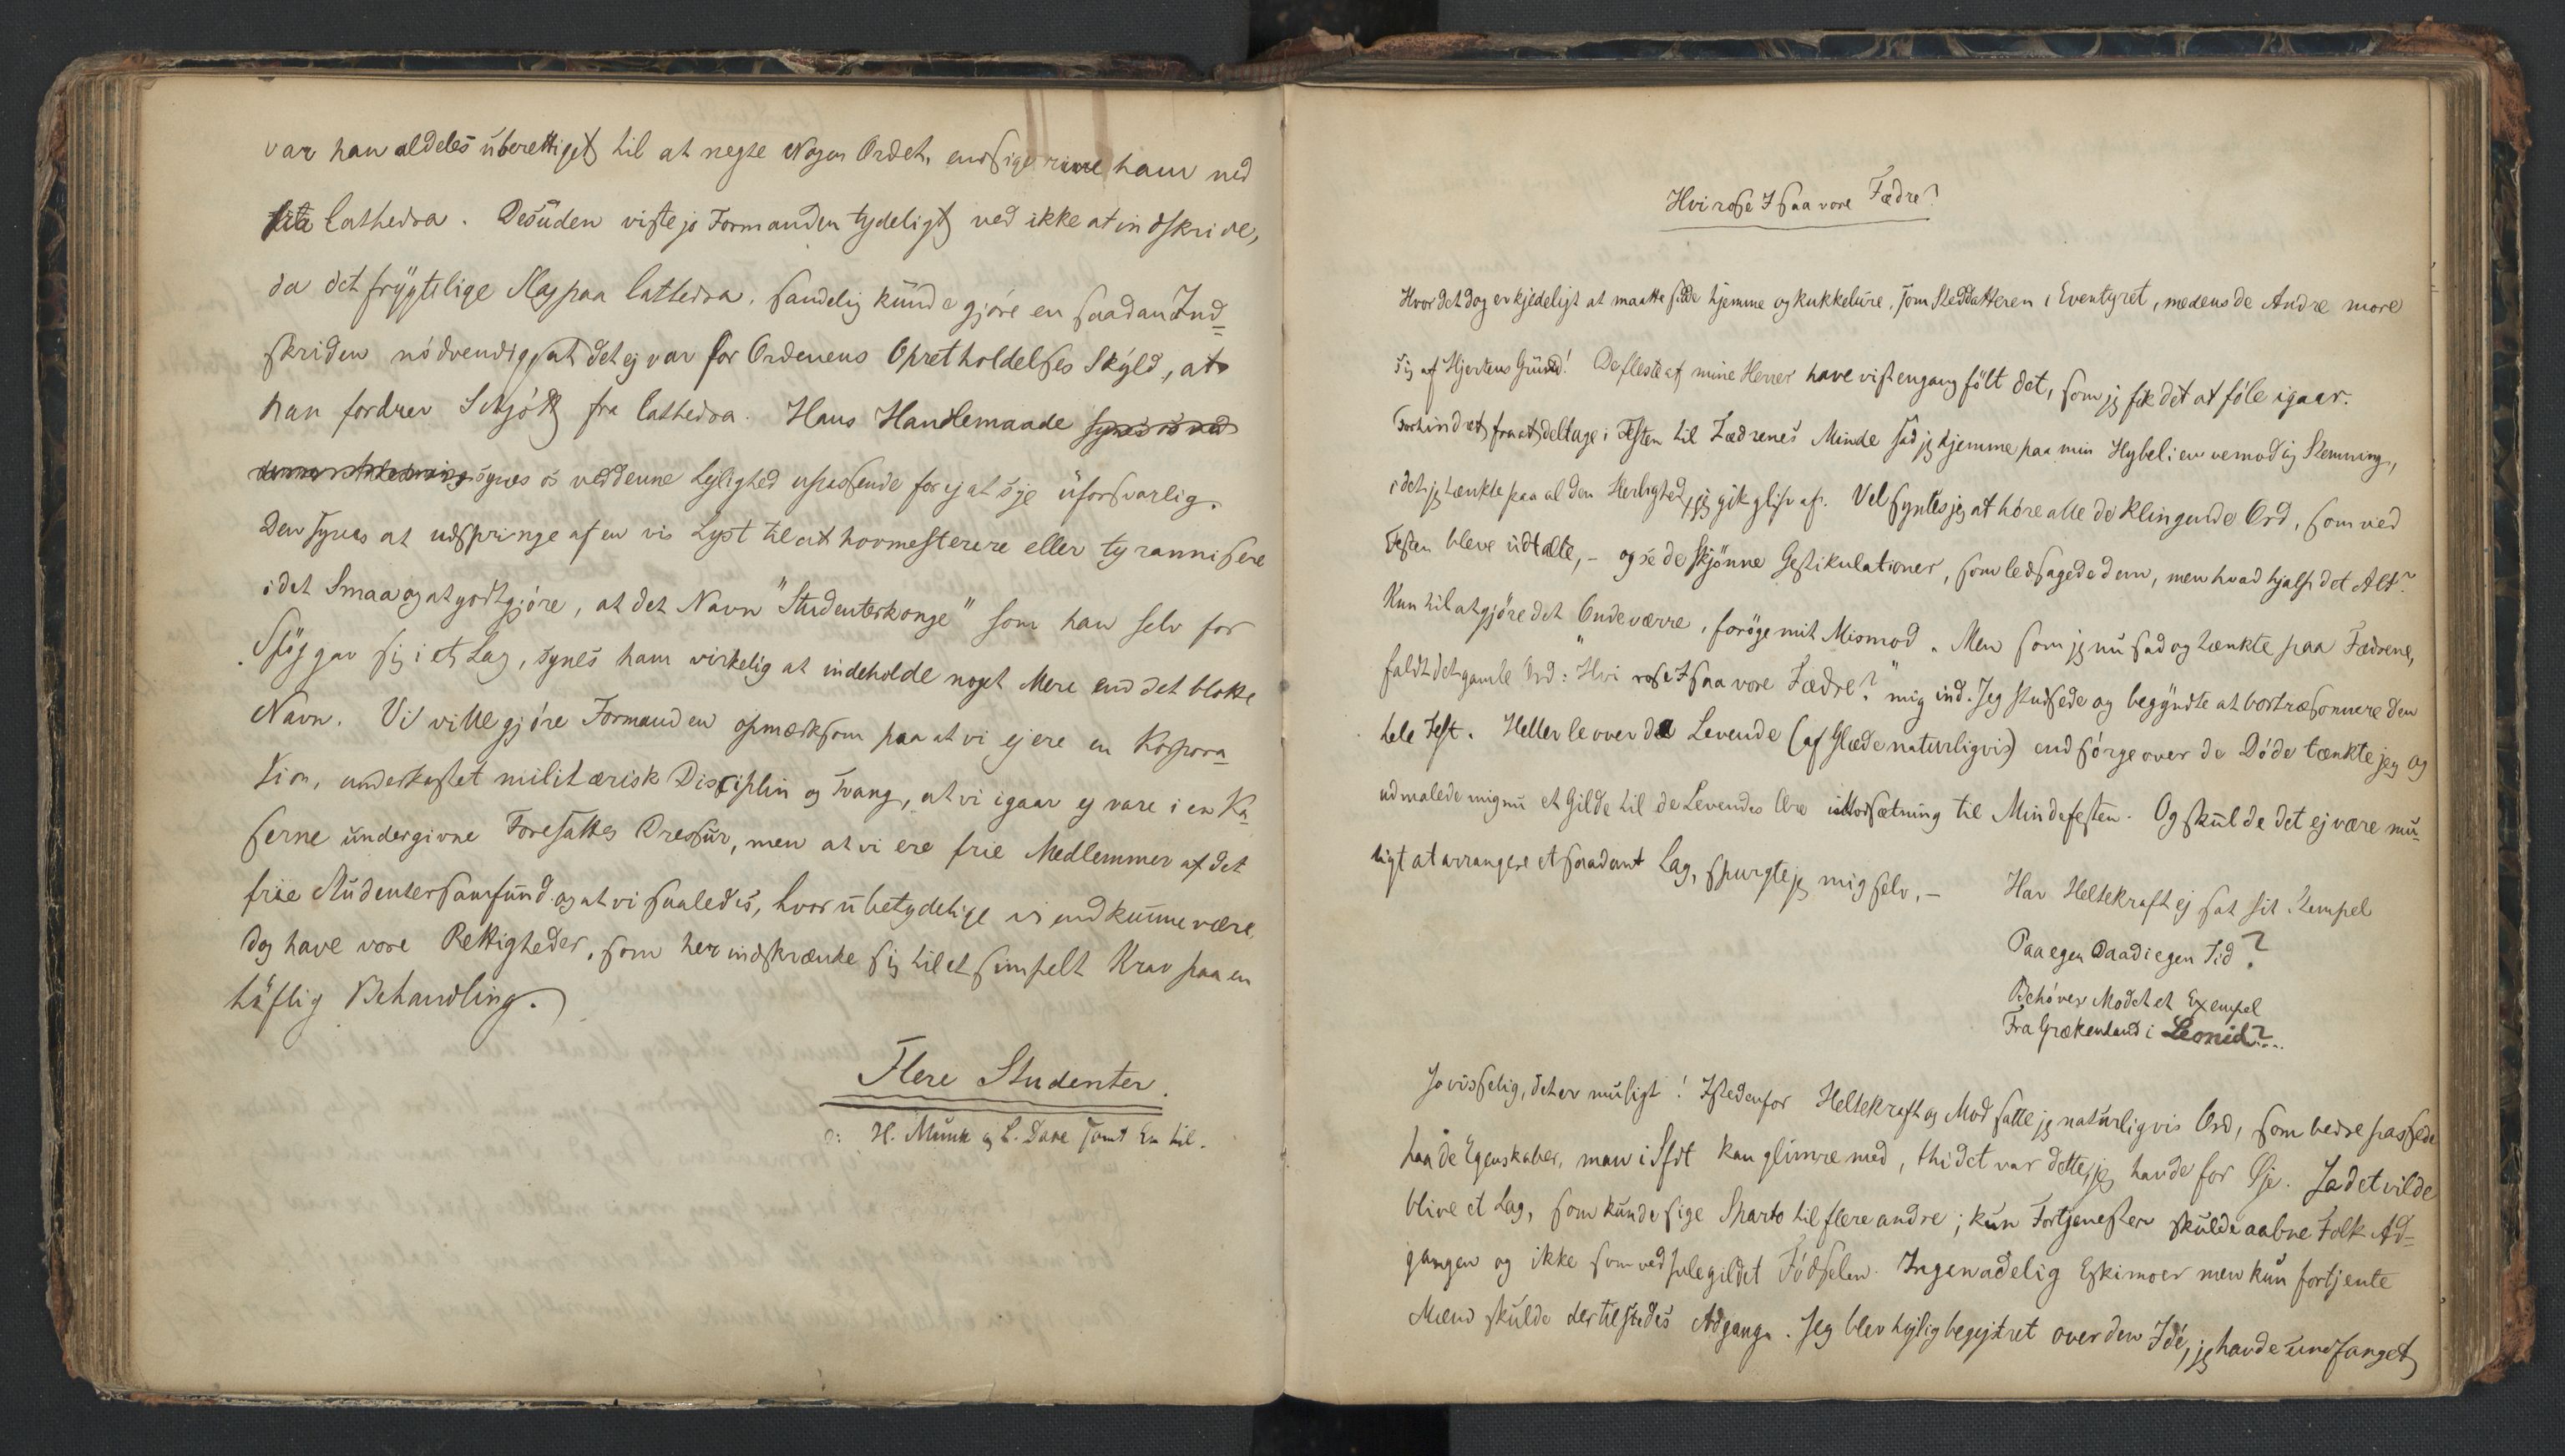 var han aldeles uberettiget til at negte Nogen Ordet, endsige rive ham ned
fra Cathedra. Desuden viste jo Formanden tydeligt ved ikke at indskride,
da det frygtelige Slag paa Cathedra, sandelig kunde gjøre en saadan Ind-
skriden nødvendig, at det ej var for Ordenens Opretholdelses Skyld, at
han fordrev Schjøtt fra Cathedra. Hans Handlemaade synes os ved
denne Anledning synes os ved denne Lejlighed upassende for ej at sige uforsvarlig.
Den synes at udspringe af en vis Lyst til at hovmesterere eller tyrannisere
i det Smaa og at godtgjøre, at det Navn "Studenterkonge" som han selv for
Spøg gav sig i et Lag, synes ham virkelig at indeholde noget Mere end det blotte
Navn. Vi ville gjøre Formanden opmærksom paa at vi ej ere en Korpora-
tion, underkastet militærisk Disciplin og Tvang, at vi igaar ej vare i en Ka-
serne undergivne Foresattes Dressur, men at vi ere frie Medlemmer af det
frie Studentersamfund og at vi saaledes, hvor ubetydelige vi end kunne være,
dog have vore Rettigheder, som her indskrænke sig til et simpelt Krav paa en
høflig Behandling.
Flere Studenter.
o: H. Munk og L. Daae samt En til.
Hvi rose I saa vore Fædre?
Hvor det dog er kjedeligt at maatte sidde hjemme og kukkelure, som Steddatteren i Eventyret, medens de Andre more
sig af Hjertens Grund! De fleste af mine Herrer have vist engang følt det, som jeg fik det at føle igaar.
Forhindret fra at deltage i Festen til Fædrenes Minde sad jeg hjemme paa min Hybel i en vemodig Stemning,
idet jeg tænkte paa al den Herlighed, jeg gik glip af. Vel syntes jeg at høre alle de klingende Ord, som ved
Festen bleve udtalte, – og se de skjønne Gestikulationer, som ledsagede dem, men hvad hjalp det Alt?
Kun til at gjøre det Onde værre, forøge mit Mismod. Men som jeg nu sad og tænkte paa Fædrene,
faldt det gamle Ord: "Hvi rose I saa vore Fædre?" mig ind. Jeg studsede og begyndte at bortræsonnere den
hele Fest. Heller le over de Levende (af Glæde naturligvis) end sørge over de Døde tænkte jeg og
udmalede mig nu et Gilde til de Levendes Ære i Modsætning til Mindefesten. Og skulde det ej være mu-
ligt at arrangere et saadant Lag, spurgte jeg mig selv, –
Har Heltekraft ej sat sit Stempel
Paa egen Daad i egen Tid?
Behøver Modet et Exempel
Fra Grækenland i Leonid?...
Jo visselig, det er muligt! Istedenfor Heltekraft og Mod satte jeg naturligvis Ord, som bedre passede
paa de Egenskaber, man i Sfdt kan glimre med, thi det var dette, jeg havde for Øje. Ja det vilde
blive et Lag, som kunde sige Skarto til flere andre; kun Fortjenesten skulde aabne Folk Ad-
gangen og ikke som ved Julegildet Fødselen. Ingen adelig Eskimoer men kun fortjente
Mænd skulde der tilstedes Adgang. Jeg blev hjertelig begejstret over den Idé, jeg havde undfanget